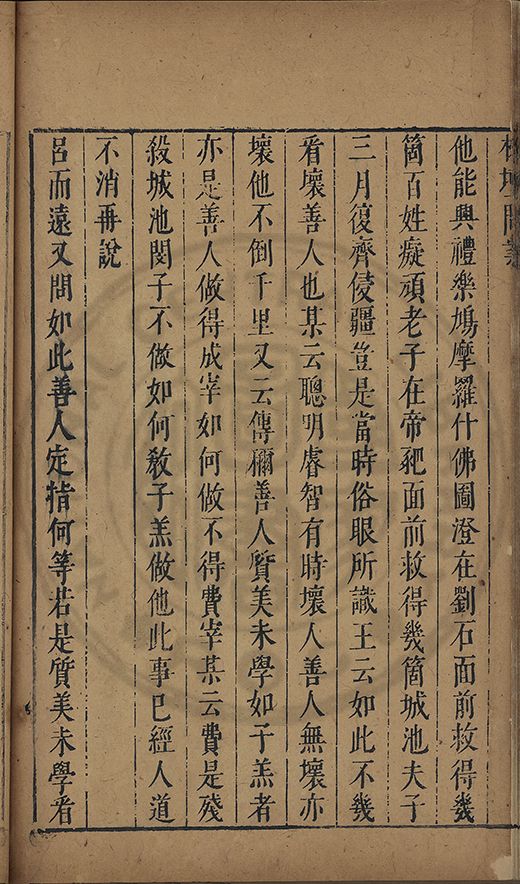 榕壇問業
他能興禮樂鳩摩羅什佛圖澄在劉石面前救得幾
箇百姓癡頑老子在帝羓面前救得幾箇城池夫子
三月復齊侵疆豈是當時俗眼所識王云如此不幾
看壞善人也某云聰明睿智有時壞人善人無壞亦
壞他不倒千里又云傳稱善人質美未學如子羔者
亦是善人做得成宰如何做不得費宰某云費是殘
殺城池閔子不做如何教子羔做他此事已經人道
不消再說
呂而遠又問如此善人定指何等若是質美未學看